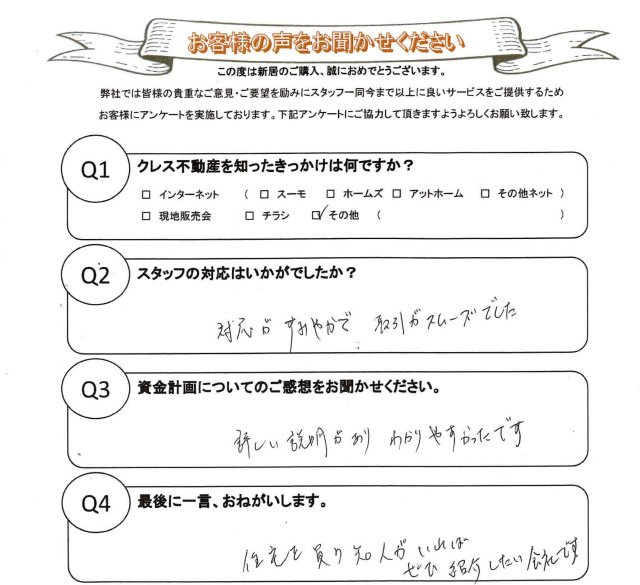 お客様の声をお聞かせください
この度は新居のご購入、誠におめでとうございます。
弊社では皆様の貴重なご意見・ご要望を励みにスタッフ一同今まで以上に良いサービスをご提供するため
お客様にアンケートを実施しております。下記アンケートにご協力して頂きますようよろしくお願い致します。
Q1 クレス不動産を知ったきっかけは何ですか？
□ インターネット （ □ スーモ □ ホームズ □ アットホーム □ その他ネット ）
□ 現地販売会 □ チラシ ☑ その他 （ ）
Q2 スタッフの対応はいかがでしたか？
対応がすみやかで 取引がスムーズでした
Q3 資金計画についてのご感想をお聞かせください。
詳しい説明があり わかりやすかったです
Q4 最後に一言、おねがいします。
住宅を買う知人がいれば
ぜひ紹介したい会社です